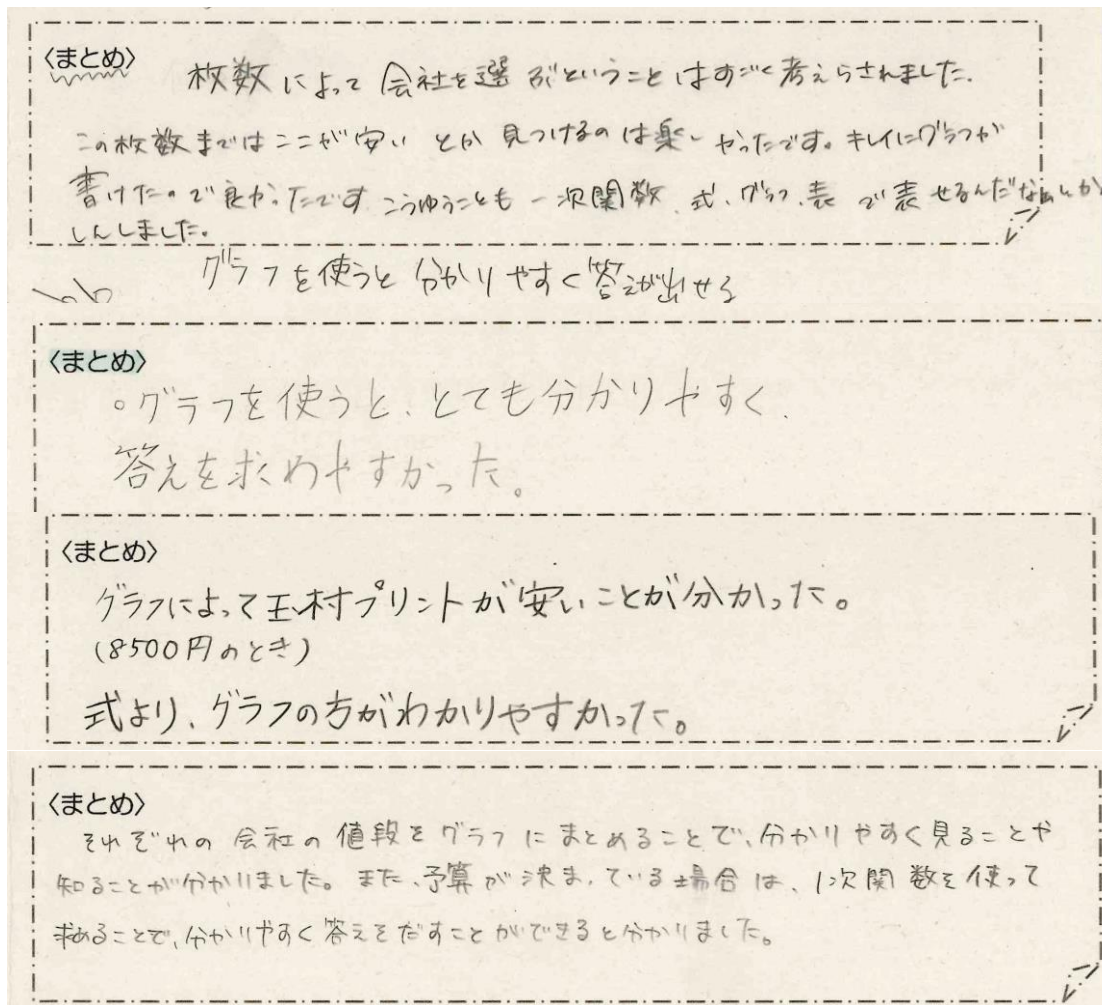 〈まとめ〉
枚数によって会社を選ぶということはすごく考えらされました。
この枚数まではここが安いとか見つけるのは楽しかったです。キレイにグラフが
書けたので良かったです こうゆうことも一次関数、式、グラフ、表で表せるんだなぁとか
しんしました。
グラフを使うと分かりやすく答えが出せる
〈まとめ〉
。グラフを使うと、とても分かりやすく、
答えを求めやすかった。
〈まとめ〉
グラフによって玉村プリントが安いことが分かった。
(8500円のとき)
式より、グラフの方がわかりやすかった。
〈まとめ〉
それぞれの会社の値段をグラフにまとめることで、分かりやすく見ることや
知ることが分かりました。また、予算が決まっている場合は、1次関数を使って
求めることで、分かりやすく答えをだすことができると分かりました。